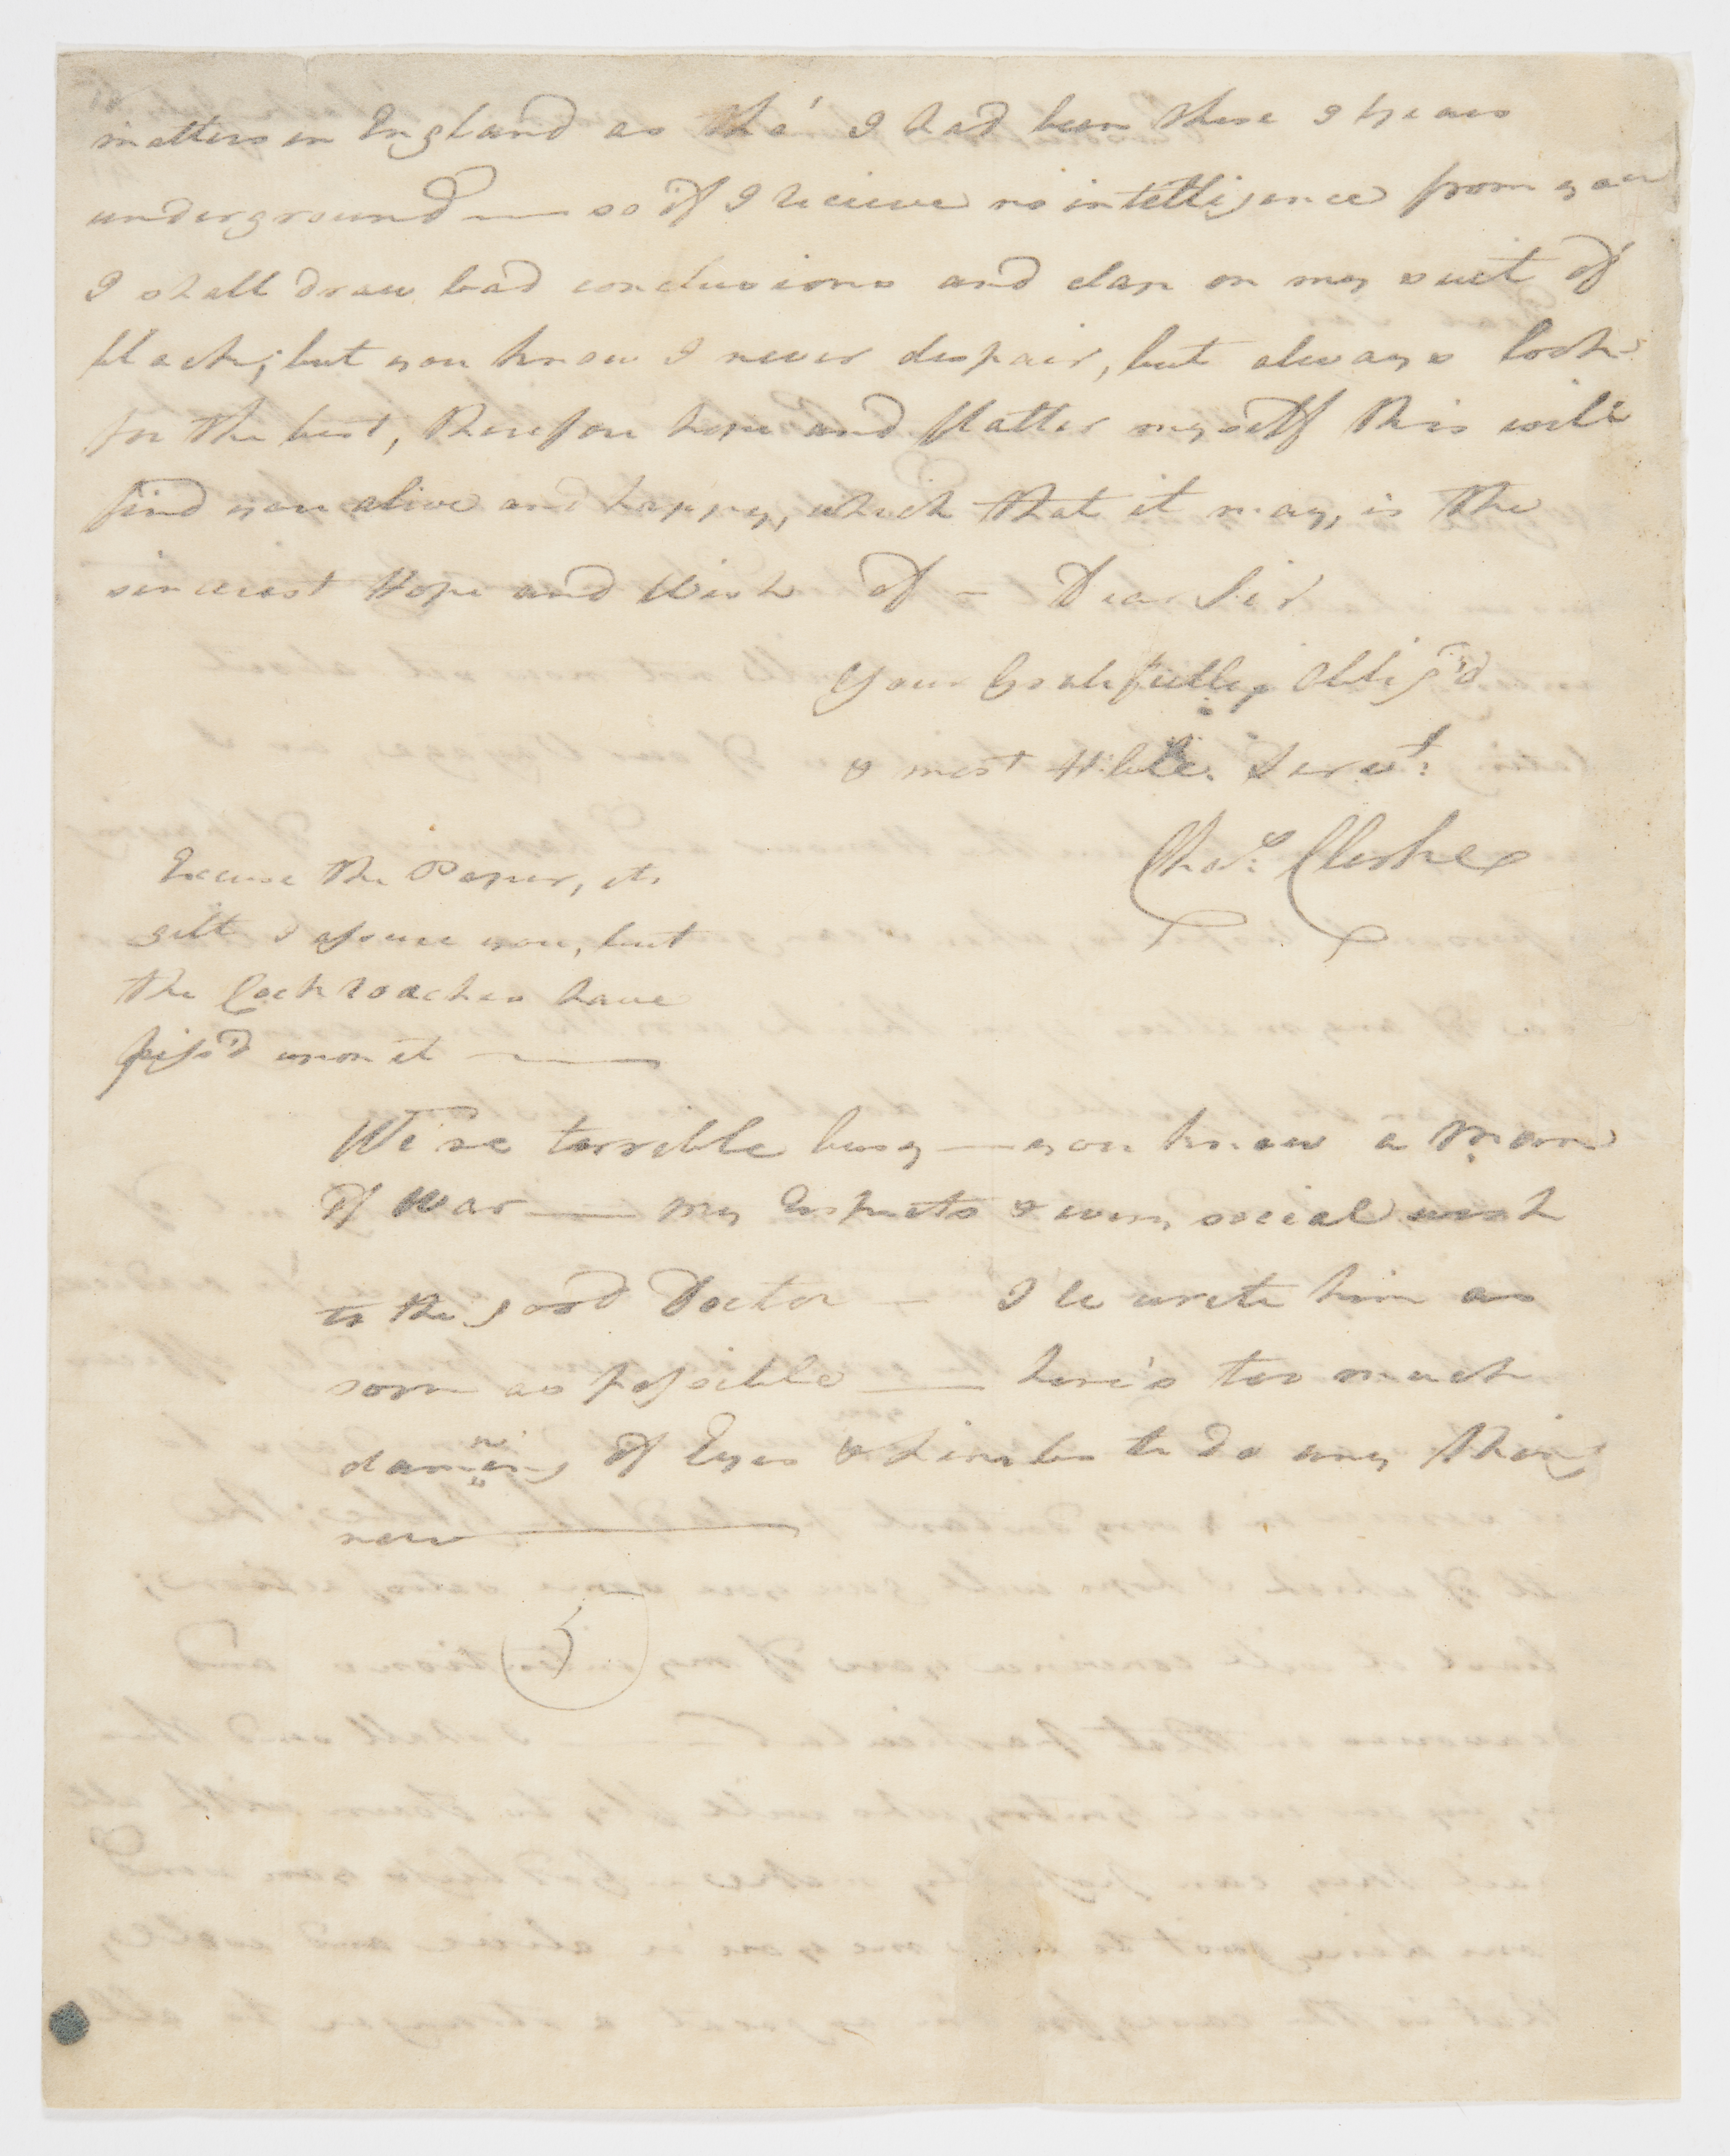 matters in England as tho' I had been these 3 years
underground — so if I recieve no intelligence from you
I shall draw bad conclusions and clap on my suit of
black; but you know I never despair, but always look
for the best, therefore hope and flatter myself this will
find you alive and happy, which that it may, is the
sincerest Hope and Wish of – Dear Sir
Your Gratefully Oblig'd
& most H:ble. Servt:
Chas: Clerke
Excuse the Paper, its
gilt I assure you, but
the Cockroaches have
piss'd upon it ———
We're terrible busy — you know a Man
of War — my Respects & every social wish
to the good Doctor — I'le write him as
soon as possible — here's too much
damning of Eyes & Limbs to do any thing
now ———
5